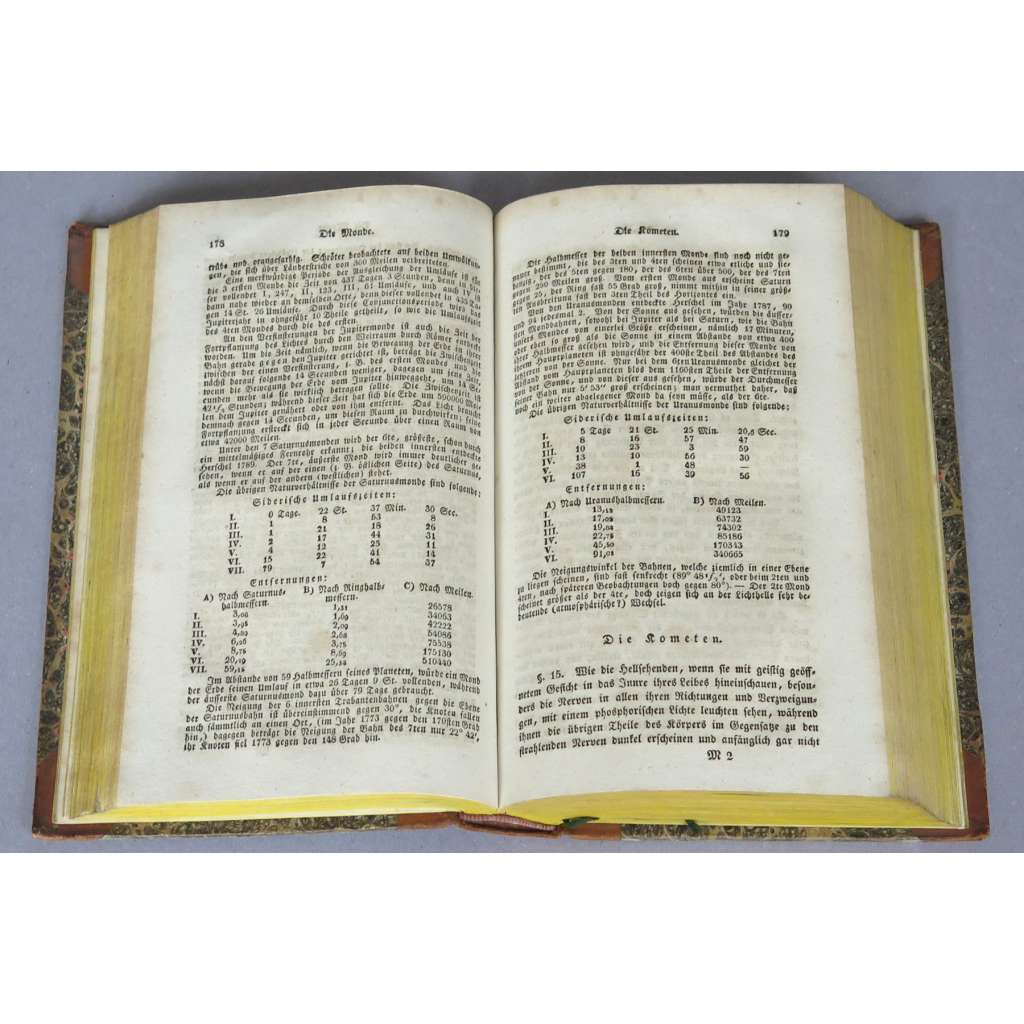 178
Die Monde.
gen, die sich über Länderstriche von 300 Meilen verbreiteten.
Eine merkwürdige Periode der Ausgleichung der Umläufe ist für
die 3 ersten Monde die Zeit von 437 Tagen 3 Stunden, denn in die-
ser vollendet I, 247, II, 123, III, 61 Umläufe, und auch IV ist
dann nahe wieder an demselben Orte, denn dieser vollendet in 435 Ta-
gen 14 St. 26 Umläufe. Durch diese Conjunctionsperiode wird das
Jupiterjahr in ohngefähr 10 Theile getheilt, so wie die Umlaufszeit
des 4ten Mondes durch die des ersten.
An den Verfinsterungen der Jupitermonde ist auch die Zeit der
Fortpflanzung des Lichtes durch den Weltraum durch Römer entdeckt
worden. Um die Zeit nämlich, wenn die Bewegung der Erde in ihrer
Bahn gerade gegen den Jupiter gerichtet ist, beträgt die Zwischenzeit
zwischen der einen Verfinsterung, z. B. des ersten Mondes und der
nächst darauf folgende 14 Secunden weniger, dagegen um jene Zeit,
wenn die Bewegung der Erde vom Jupiter hinweggeht, um 14 Se-
cunden mehr als sie eigentlich betragen sollte. Die Zwischenzeit ist
42 1/2 Stunden; während dieser Zeit hat sich die Erde um 590000 Mei-
len dem Jupiter genähert oder von ihm entfernt. Das Licht braucht
demnach gegen 14 Secunden, um diesen Raum zu durchwirken; seine
Fortpflanzung erstreckt sich in jeder Secunde über einen Raum von
etwa 42000 Meilen.
Unter den 7 Saturnusmonden wird der 6te, größeste, schon durch
ein mittelmäßiges Fernrohr erkannt; die beiden innersten entdeckte
Herschel 1789. Der 7te, äußerste Mond wird immer deutlicher ge-
sehen, wenn er auf der einen (z. B. östlichen Seite) des Saturnus,
als wenn er auf der andern (westlichen) stehet.
Die übrigen Naturverhältnisse der Saturnusmonde sind folgende:
Siderische Umlaufszeiten:
I. 0 Tage. 22 St. 37 Min. 30 Sec.
II. 1 8 53 8
III. 1 21 18 26
IV. 2 17 44 31
V. 4 12 25 11
VI. 15 22 41 14
VII. 79 7 54 37
Entfernungen:
A) Nach Saturnus- B) Nach Ringhalb- C) Nach Meilen.
halbmessern. messern.
I. 1,31 26578
II. 1,69 34063
III. 2,09 42222
IV. 2,68 54086
V. 8,76 3,75 75538
VI. 8,69 175130
VII. 59,15 510440
Im Abstande von 59 Halbmessern seines Planeten, würde ein Mond
der Erde seinen Umlauf in etwa 26 Tagen 9 St. vollenden, während
der äusserste Saturnusmond dazu über 79 Tage gebraucht.
Die Neigung der 6 innersten Trabantenbahnen gegen die Ebene
der Saturnusbahn ist übereinstimmend gegen 30°, die Knoten fallen
auch sämmtlich an einen Ort, (im Jahr 1773 gegen den 170sten Grad
hin,) dagegen beträgt die Neigung der Bahn des 7ten nur 22° 42',
ihr Knoten fiel 1773 gegen den 148 Grad hin.
Die Kometen.
179
Die Halbmesser der beiden innersten Monde sind noch nicht ge-
nauer bestimmt, die des 3ten und 4ten scheinen etwa etliche und sie-
benzig, der des 5ten gegen 180, der des 6ten über 500, der des 7ten
gegen 200 Meilen groß. Vom ersten Monde aus erscheint Saturn
gegen 25, der Ring fast 55 Grad groß, nimmt mithin in seiner größ-
ten Ausbreitung fast den 3ten Theil des Horizontes ein.
Von den Uranusmonden entdeckte Herschel im Jahr 1787, 90
und 94 jedesmal 2. Von der Sonne aus gesehen, würden die äusser-
sten Mondbahnen, sowohl bei Jupiter als bei Saturn, wie die Bahn
unsers Mondes von einerlei Größe erscheinen, nämlich 17 Minuten,
oder eben so groß als die Sonne in einem Abstande von etwa 400
ihrer Halbmesser gesehen wird, und die Entfernung dieser Monde von
ihrem Hauptplaneten ist ohngefähr der 400ste Theil des Abstandes des
letzteren von der Sonne. Nur bei dem 6ten Uranusmonde gleichet der
Abstand vom Hauptplaneten blos dem 1166sten Theile der Entfernung
von der Sonne, und von dieser aus gesehen, würde der Durchmesser
seiner Bahn nur 5' 53" groß erscheinen; man vermuthet daher, daß
noch ein weiter abgelegener Mond da seyn müsse, als der 6te.
Die übrigen Naturverhältnisse der Uranusmonde sind folgende:
Siderische Umlaufszeiten:
I. 5 Tage 21 St. 25 Min. 20,6 Sec.
II. 8 16 57 47
III. 10 23 3 59
IV. 13 10 56 30
V. 38 1 48 —
VI. 107 16 39 56
Entfernungen:
A) Nach Uranushalbmessern. B) Nach Meilen.
I. 13,12 49123
II. 17,02 63732
III. 74302
IV. 22,75 85186
V. 45,50 170343
VI. 91,01 340665
Die Neigungswinkel der Bahnen, welche ziemlich in einer Ebene
zu liegen scheinen, sind fast senkrecht (89° 48', oder beim 2ten und
4ten, nach späteren Beobachtungen doch gegen 80°). — Der 2te Mond
scheinet größer als der 4te, doch zeigen sich an der Lichthelle sehr be-
deutende (atmosphärische?) Wechsel.
Die Kometen.
§. 15. Wie die Hellsehenden, wenn sie mit geistig geöff-
netem Gesicht in das Innre ihres Leibes hineinschauen, beson-
ders die Nerven in allen ihren Richtungen und Verzweigun-
gen, mit einem phosphorischen Lichte leuchten sehen, während
ihnen die übrigen Theile des Körpers im Gegensatze zu den
strahlenden Nerven dunkel erscheinen und anfänglich gar nicht
M 2